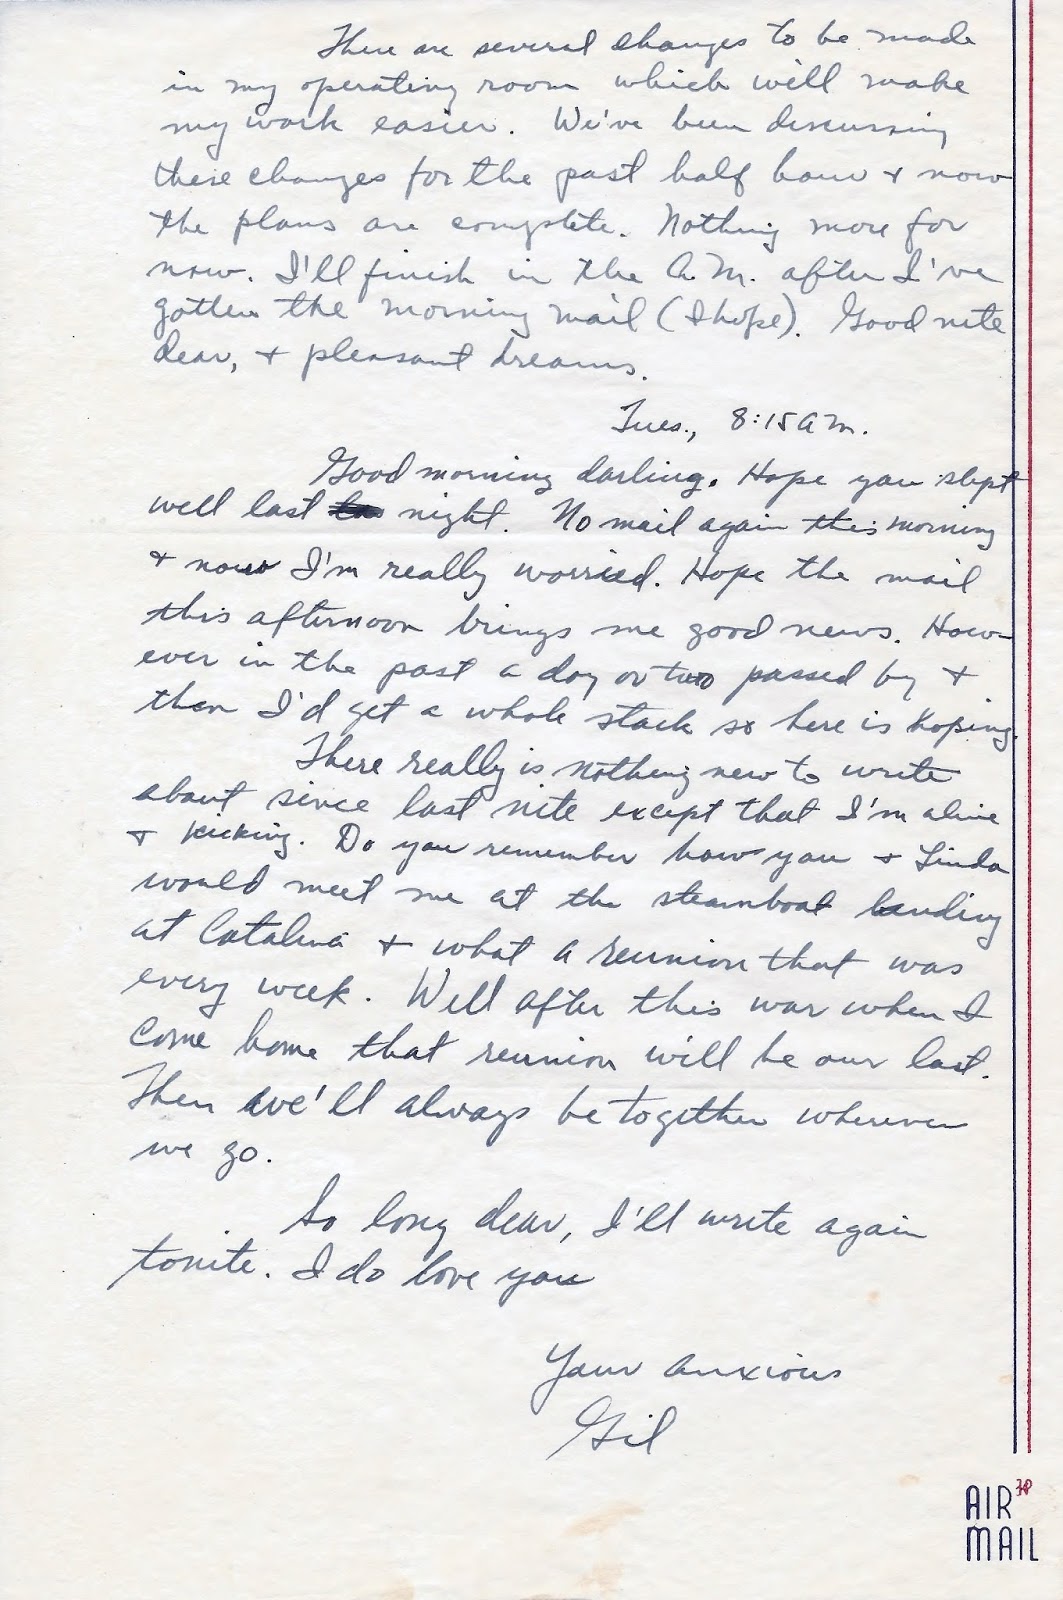 There are several changes to be made
in my operating room which will make
my work easier. We've been discussing
these changes for the past half hour + now
the plans are complete. Nothing more for
now. I'll finish in the A.M. after I've
gotten the morning mail (I hope). Good nite
dear, + pleasant dreams.
Tues., 8:15 A M.
Good morning darling. Hope you slept
well last night. No mail again this morning
+ now I'm really worried. Hope the mail
this afternoon brings me good news. How-
ever in the past a day or two passed by +
then I'd get a whole stack so here is hoping.
There really is nothing new to write
about since last nite except that I'm alive
+ kicking. Do you remember how you + Linda
would meet me at the steamboat landing
at Catalina + what a reunion that was
every week. Well after this war when I
come home that reunion will be our last.
Then we'll always be together wherever
we go.
So long dear, I'll write again
tonite. I do love you
Your anxious
Gil
AIR
MAIL